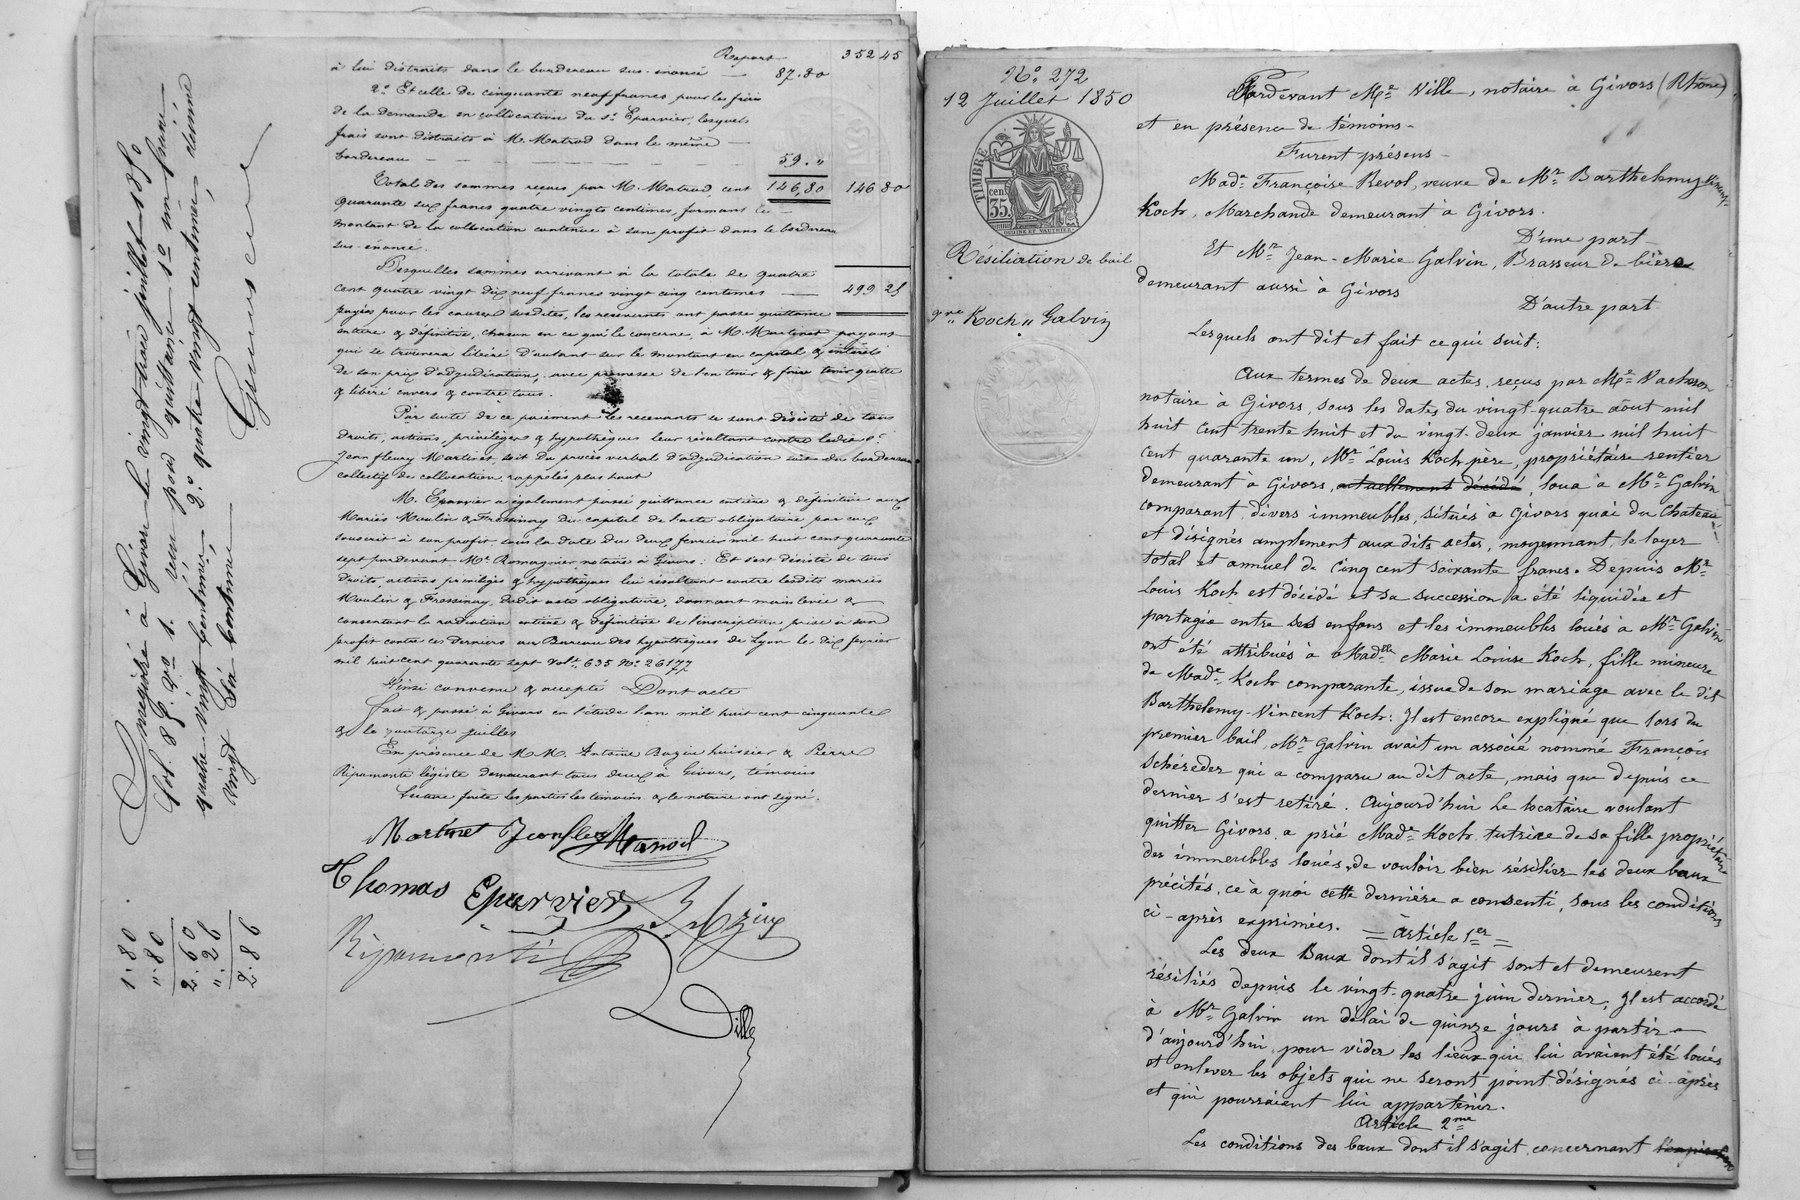 Report 352 45
à lui distraits dans le bordereau sus-énoncé — 87.80
2º Et celle de cinquante neuf francs pour les frais
de la demande en collocation du sr Eparvier, lesquels
frais sont distraits à M. Matrod dans le même
bordereau — 59. "
Total des sommes reçues par M. Matrod, cent 146,80 146 80
quarante six francs quatre vingts centimes, formant le
montant de la collocation contenue à son profit dans le bordereau
sus-énoncé.
Lesquelles sommes arrivant à la totale de quatre
cent quatre vingt dix neuf francs vingt cinq centimes — 499 25
payées pour les causes susdites, les recevants ont passé quittance
entière & définitive, chacun en ce qui le concerne, à M. Martinet payant
qui se trouvera libéré d'autant sur le montant en capital & intérêts
de son prix d'adjudication, avec promesse de l'en tenir & faire tenir quitte
& libéré envers & contre tous.
Par suite de ce paiement les recevants se sont désisté de tous
droits, actions, privilèges & hypothèques leur résultant contre ledit sr
Jean fleury Martinet, soit du procès verbal d'adjudication soit du bordereau
collectif de collocation, rappelés plus haut
M. Eparvier a également passé quittance entière & définitive aux
Mariés Moulin & Frossinay du capital de l'acte obligatoire par eux
souscrit à son profit sous la date du deux février mil huit cent quarante
sept pardevant Me Romagnier notaire à Givors : Et s'est désisté de tous
droits actions privilèges & hypothèques lui résultant contre lesdits mariés
Moulin & Frossinay, dudit acte obligatoire, donnant main levée &
consentant la radiation entière & définitive de l'inscription prise à son
profit contre ces derniers au Bureau des hypothèques de Lyon le dix février
mil huit cent quarante sept Vol. 635 Nº 26177
Ainsi convenu & accepté Dont acte
fait & passé à Givors en l'étude l'an mil huit cent cinquante
& le quatorze juillet
En présence de M.M. Antoine Bazin huissier & Pierre
Ripamonte légiste demeurant tous deux à Givors, témoins
Lecture faite les parties les témoins & le notaire ont signé.
Martinet Jean fleury
Thomas Eparvier
Ripamonti
Ville
Enregistré à Givors le vingt trois juillet 1850
fol. 88. Vo 1. reçu pour quittance 1º un franc
quatre vingt centimes, 2º quatre-vingt centimes, décime
vingt six centimes
1.80
".80
2.60
".26
2.86
Nº 272
12 Juillet 1850
TIMBRE
35 cen
Résiliation de bail
Koch " Galvin
Pardevant Me Ville, notaire à Givors (Rhône)
et en présence de témoins -
Furent présens -
Made Françoise Revol, veuve de Mr Barthelemy Vincent
Koch, Marchande demeurant à Givors.
D'une part
Et Mr Jean-Marie Galvin, Brasseur de bière
demeurant aussi à Givors
D'autre part
Lesquels ont dit et fait ce qui suit:
Aux termes de deux actes, reçus par Me Vacheron
notaire à Givors, sous les dates du vingt-quatre août mil
huit cent trente huit et du vingt-deux janvier mil huit
cent quarante un, Mr Louis Koch père, propriétaire rentier
demeurant à Givors, actuellement décédé, loua à Mr Galvin
comparant, divers immeubles, situés à Givors quai du Chateau
et désignés amplement aux dits actes, moyennant le loyer
total et annuel de cinq cent soixante francs. Depuis Mr
Louis Koch est décédé et sa succession a été liquidée et
partagée entre ses enfans et les immeubles loués à Mr Galvin
ont été attribués à Madlle Marie Louise Koch, fille mineure
de Made Koch comparante, issue de son mariage avec le dit
Barthelemy-Vincent Koch: Il est encore expliqué que lors du
premier bail Mr Galvin avait un associé nommé François
Schéreder qui a comparu au dit acte, mais que depuis ce
dernier s'est retiré. Aujourd'hui le locataire voulant
quitter Givors, a prié Made Koch tutrice de sa fille propriétaire
des immeubles loués, de vouloir bien résilier les deux baux
précités, ce à quoi cette dernière a consenti, sous les conditions
ci-après exprimées. = Article 1er =
Les deux Baux dont il s'agit sont et demeurent
résiliés depuis le vingt-quatre juin dernier; Il est accordé
à Mr Galvin un délai de quinze jours à partir
d'aujourd'hui pour vider les lieux qui lui avaient été loués
et enlever les objets qui ne seront point désignés ci-après
et qui pourraient lui appartenir.
Article 2me
Les conditions des baux dont il s'agit concernant